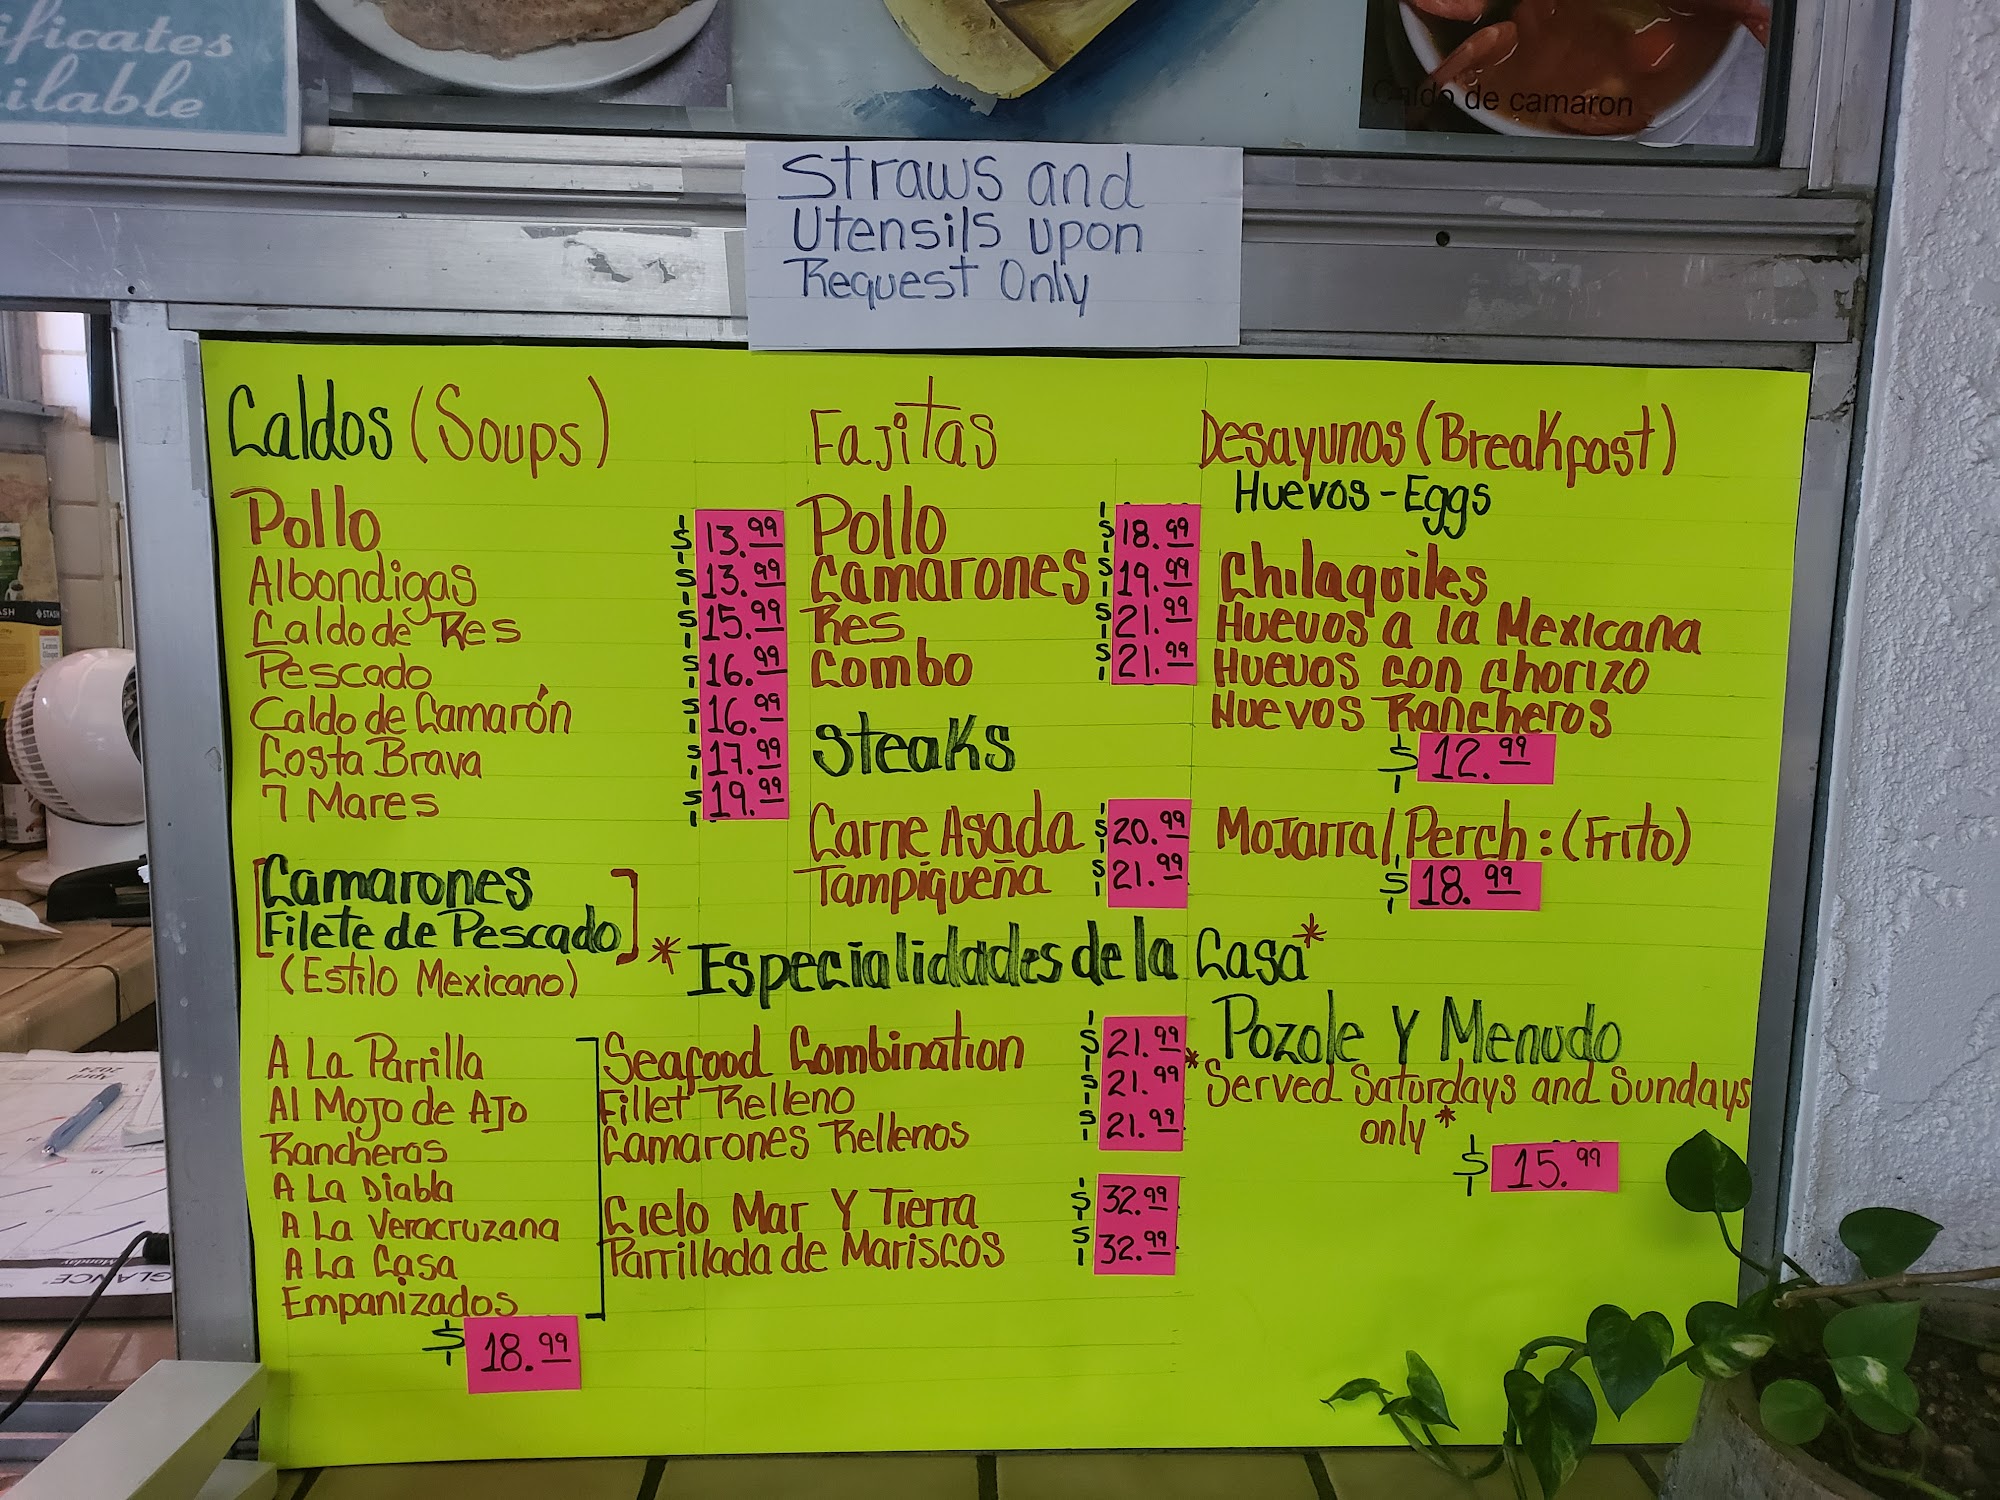 ificates
ilable
Caldo de camaron
Straws and
Utensils upon
Request Only
Caldos (Soups)
Pollo $13.99
Albondigas $13.99
Caldo de Res $15.99
Pescado $16.99
Caldo de Camarón $16.99
Costa Brava $17.99
7 Mares $19.99
Camarones
Filete de Pescado
(Estilo Mexicano)
A La Parrilla
Al Mojo de Ajo
Rancheros
A La Diabla
A La Veracruzana
A La Casa
Empanizados
$18.99
Fajitas
Pollo $18.99
Camarones $19.99
Res $21.99
Combo $21.99
Steaks
Carne Asada $20.99
Tampiqueña $21.99
*Especialidades de la Casa*
Seafood Combination $21.99
Fillet Relleno $21.99
Camarones Rellenos $21.99
Cielo Mar Y Tierra $32.99
Parrillada de Mariscos $32.99
Desayunos (Breakfast)
Huevos - Eggs
Chilaquiles
Huevos a la Mexicana
Huevos con Chorizo
Huevos Rancheros
$12.99
Mojarra/Perch: (Frito)
$18.99
Pozole Y Menudo
*Served Saturdays and Sundays
only*
$15.99
STASH
April
2024
Monday
GLANCE